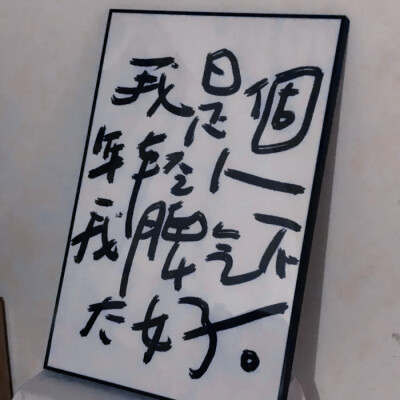 我是個
年輕人
我脾气不
太好。